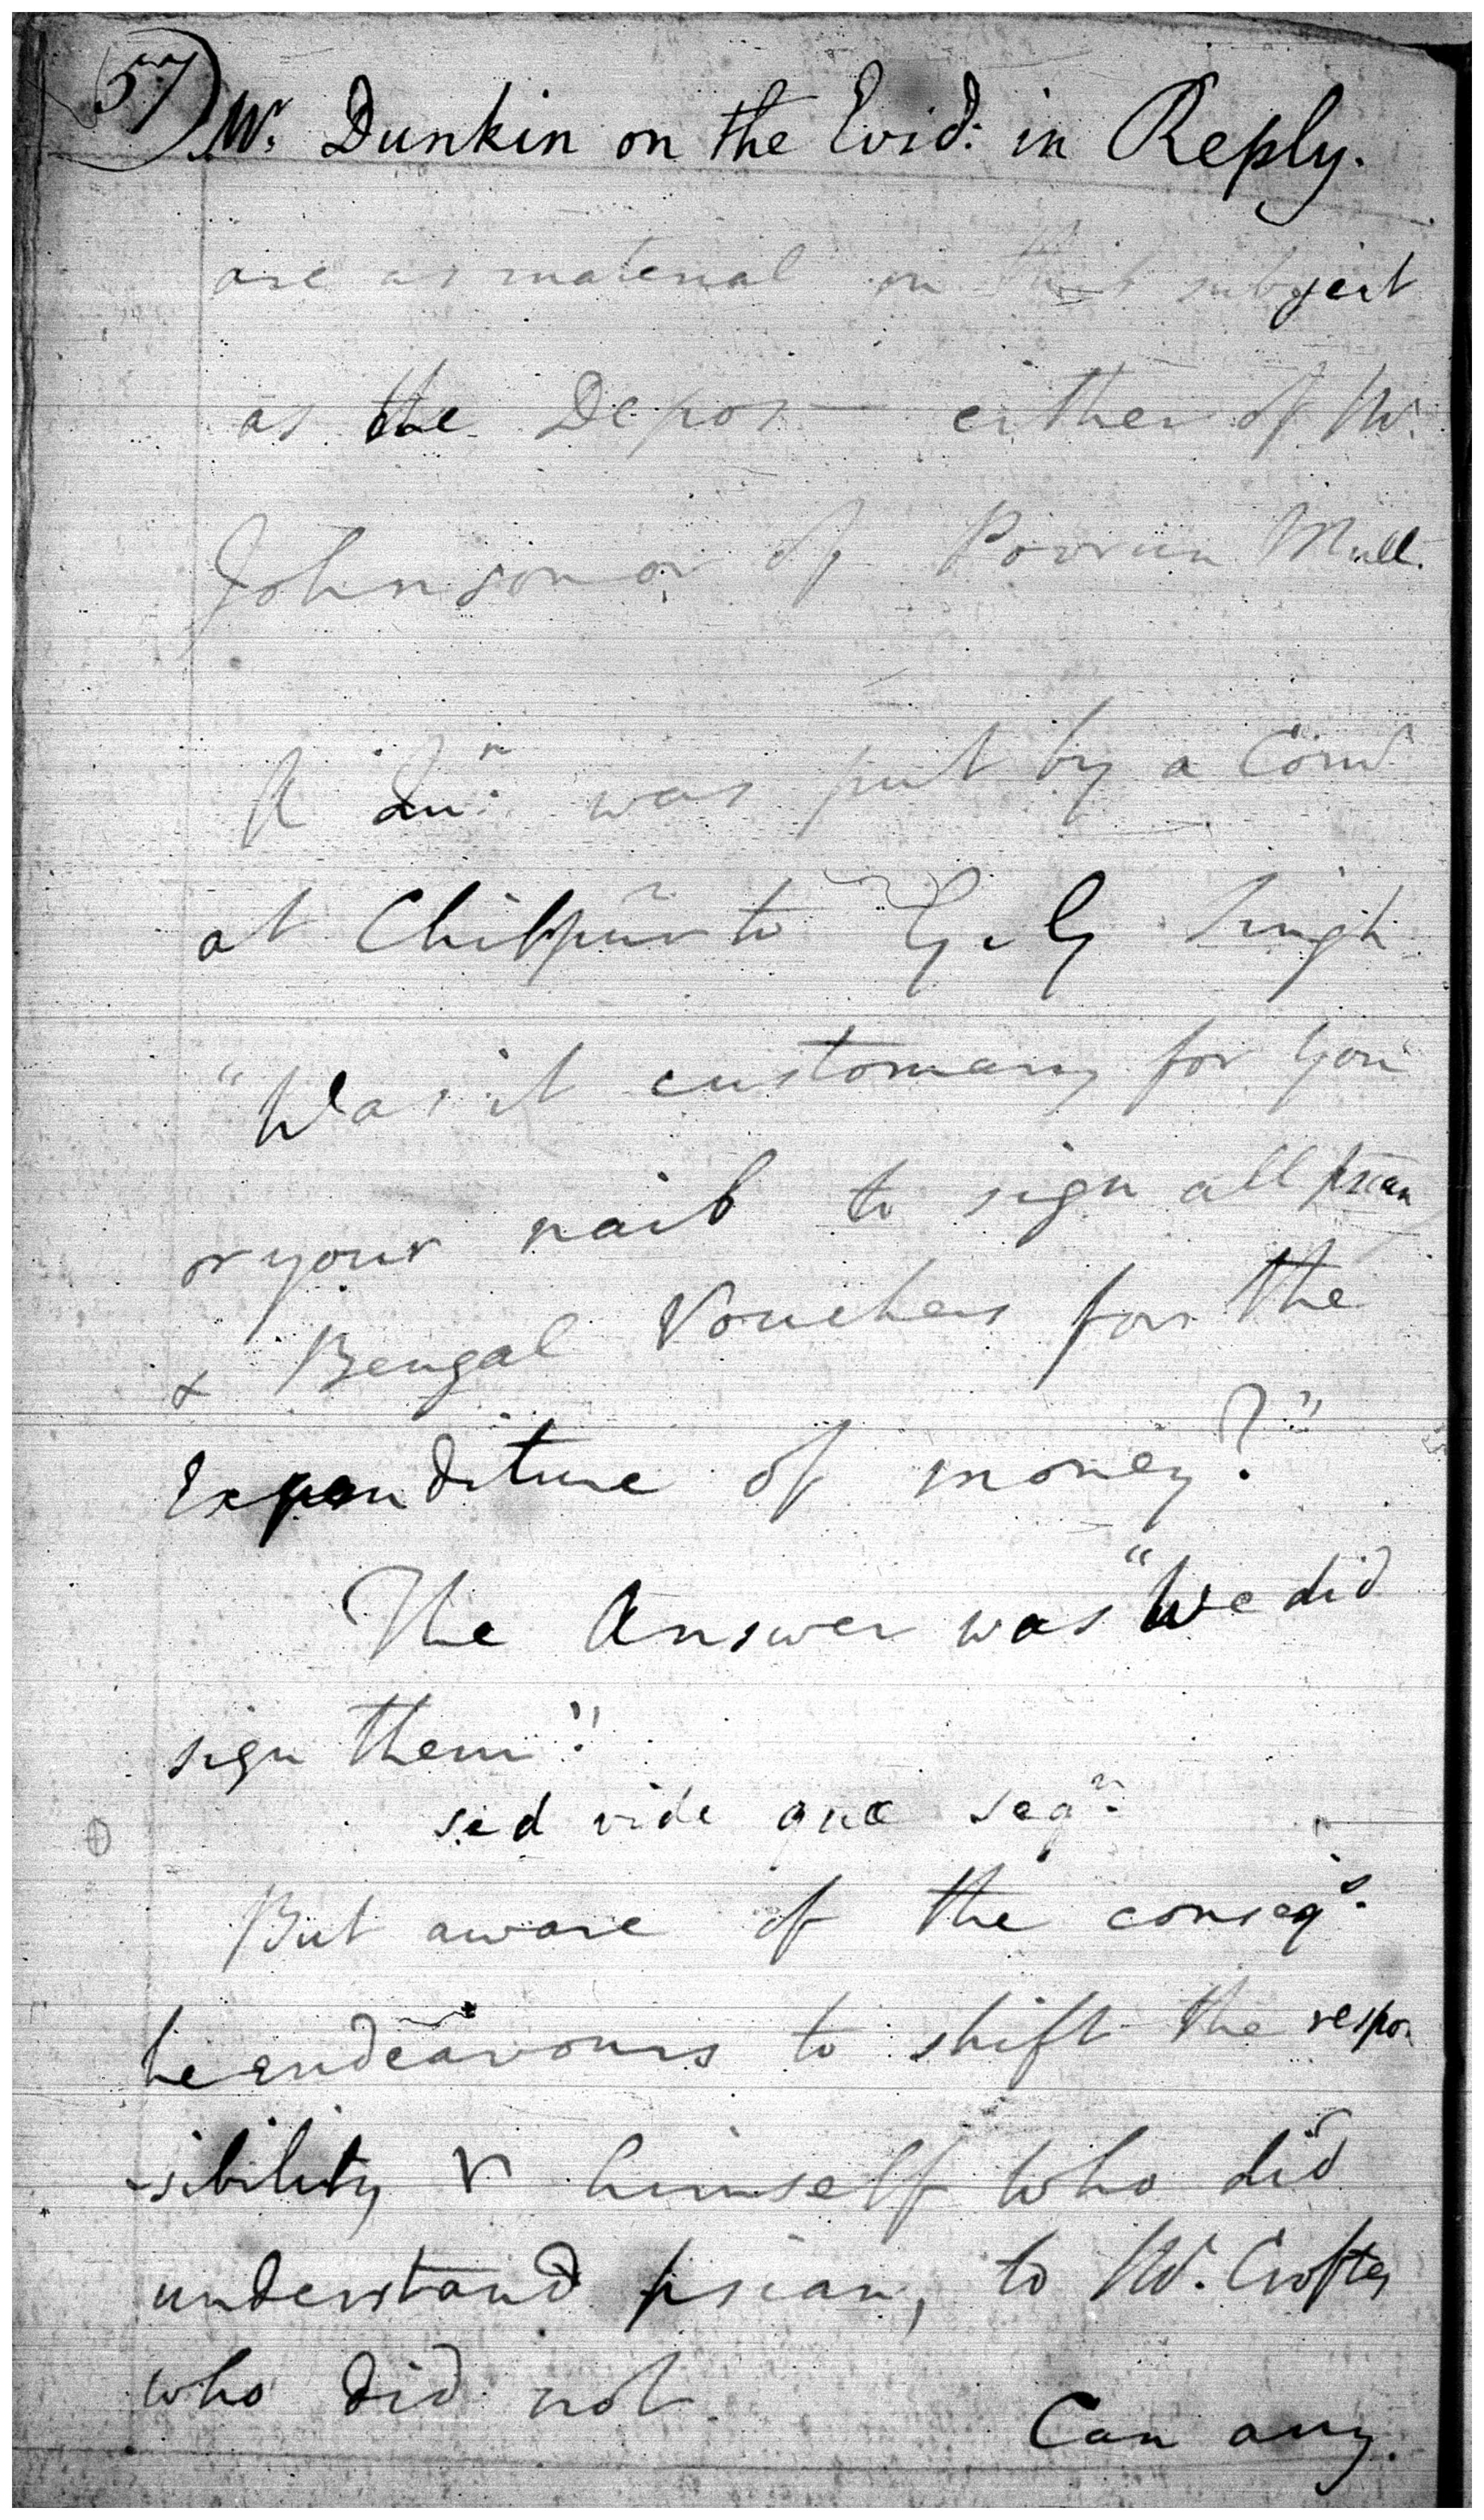 57) Mr. Dunkin on the Evid: in Reply.
are as material on that subject
as the Depos— either of Mr.
Johnson or of Poorun Mull.
A Qun: was put by a Comr
at Chitpur to G. G. Singh
"Was it customary for you
or your naib to sign all psian
& Bengal Vouchers for the
Expenditure of money?"
The Answer was "We did
sign them".
sed vide quæ seqr:
But aware of the conseqs.
he endeavours to shift the respon
-sibility himself who did
understand psian, to Mr. Croftes
who did not.
Can any.